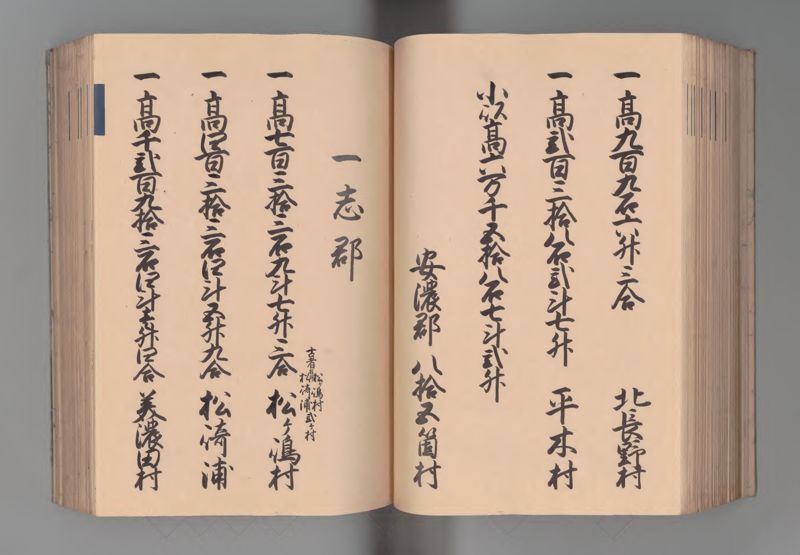 一 高九百九石六升三合 北長野村
一 高弐百三拾八石弐斗七升 平木村
小以高六万千五拾八石七斗弐升
安濃郡 八拾五箇村
一志郡
古者松ヶ嶋村
松崎浦弐ヶ村
一 高七百三拾三石九斗七升三合 松ヶ嶋村
一 高四百三拾三石四斗五升九合 松崎浦
一 高千弐百九拾三石四斗七升四合 美濃田村